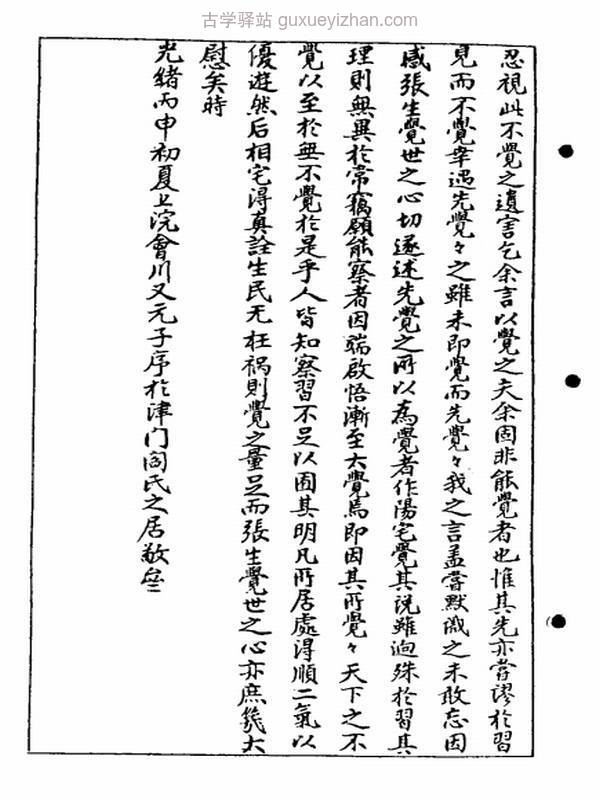 古学驿站 guxueyizhan.com
忍視此不覺之遺害乞余言以覺之夫余固非能覺者也惟其先亦嘗謬於習
見而不覺幸遇先覺々之雖未即覺而先覺々我之言盖嘗默識之未敢忘因
感張生覺世之心切遂述先覺之所以為覺者作陽宅覺其說雖迥殊於習其
理則無異於常竊願能察者因端啟悟漸至大覺焉即因其所覺々天下之不
覺以至於無不覺於是乎人皆知察習不足以囿其明凡所居處得順二氣以
優遊然后相宅得真詮生民无枉祸則覺之量足而張生覺世之心亦庶幾大
慰矣時
光緒丙申初夏上浣會川又元子序於津门阎氏之居敬叁